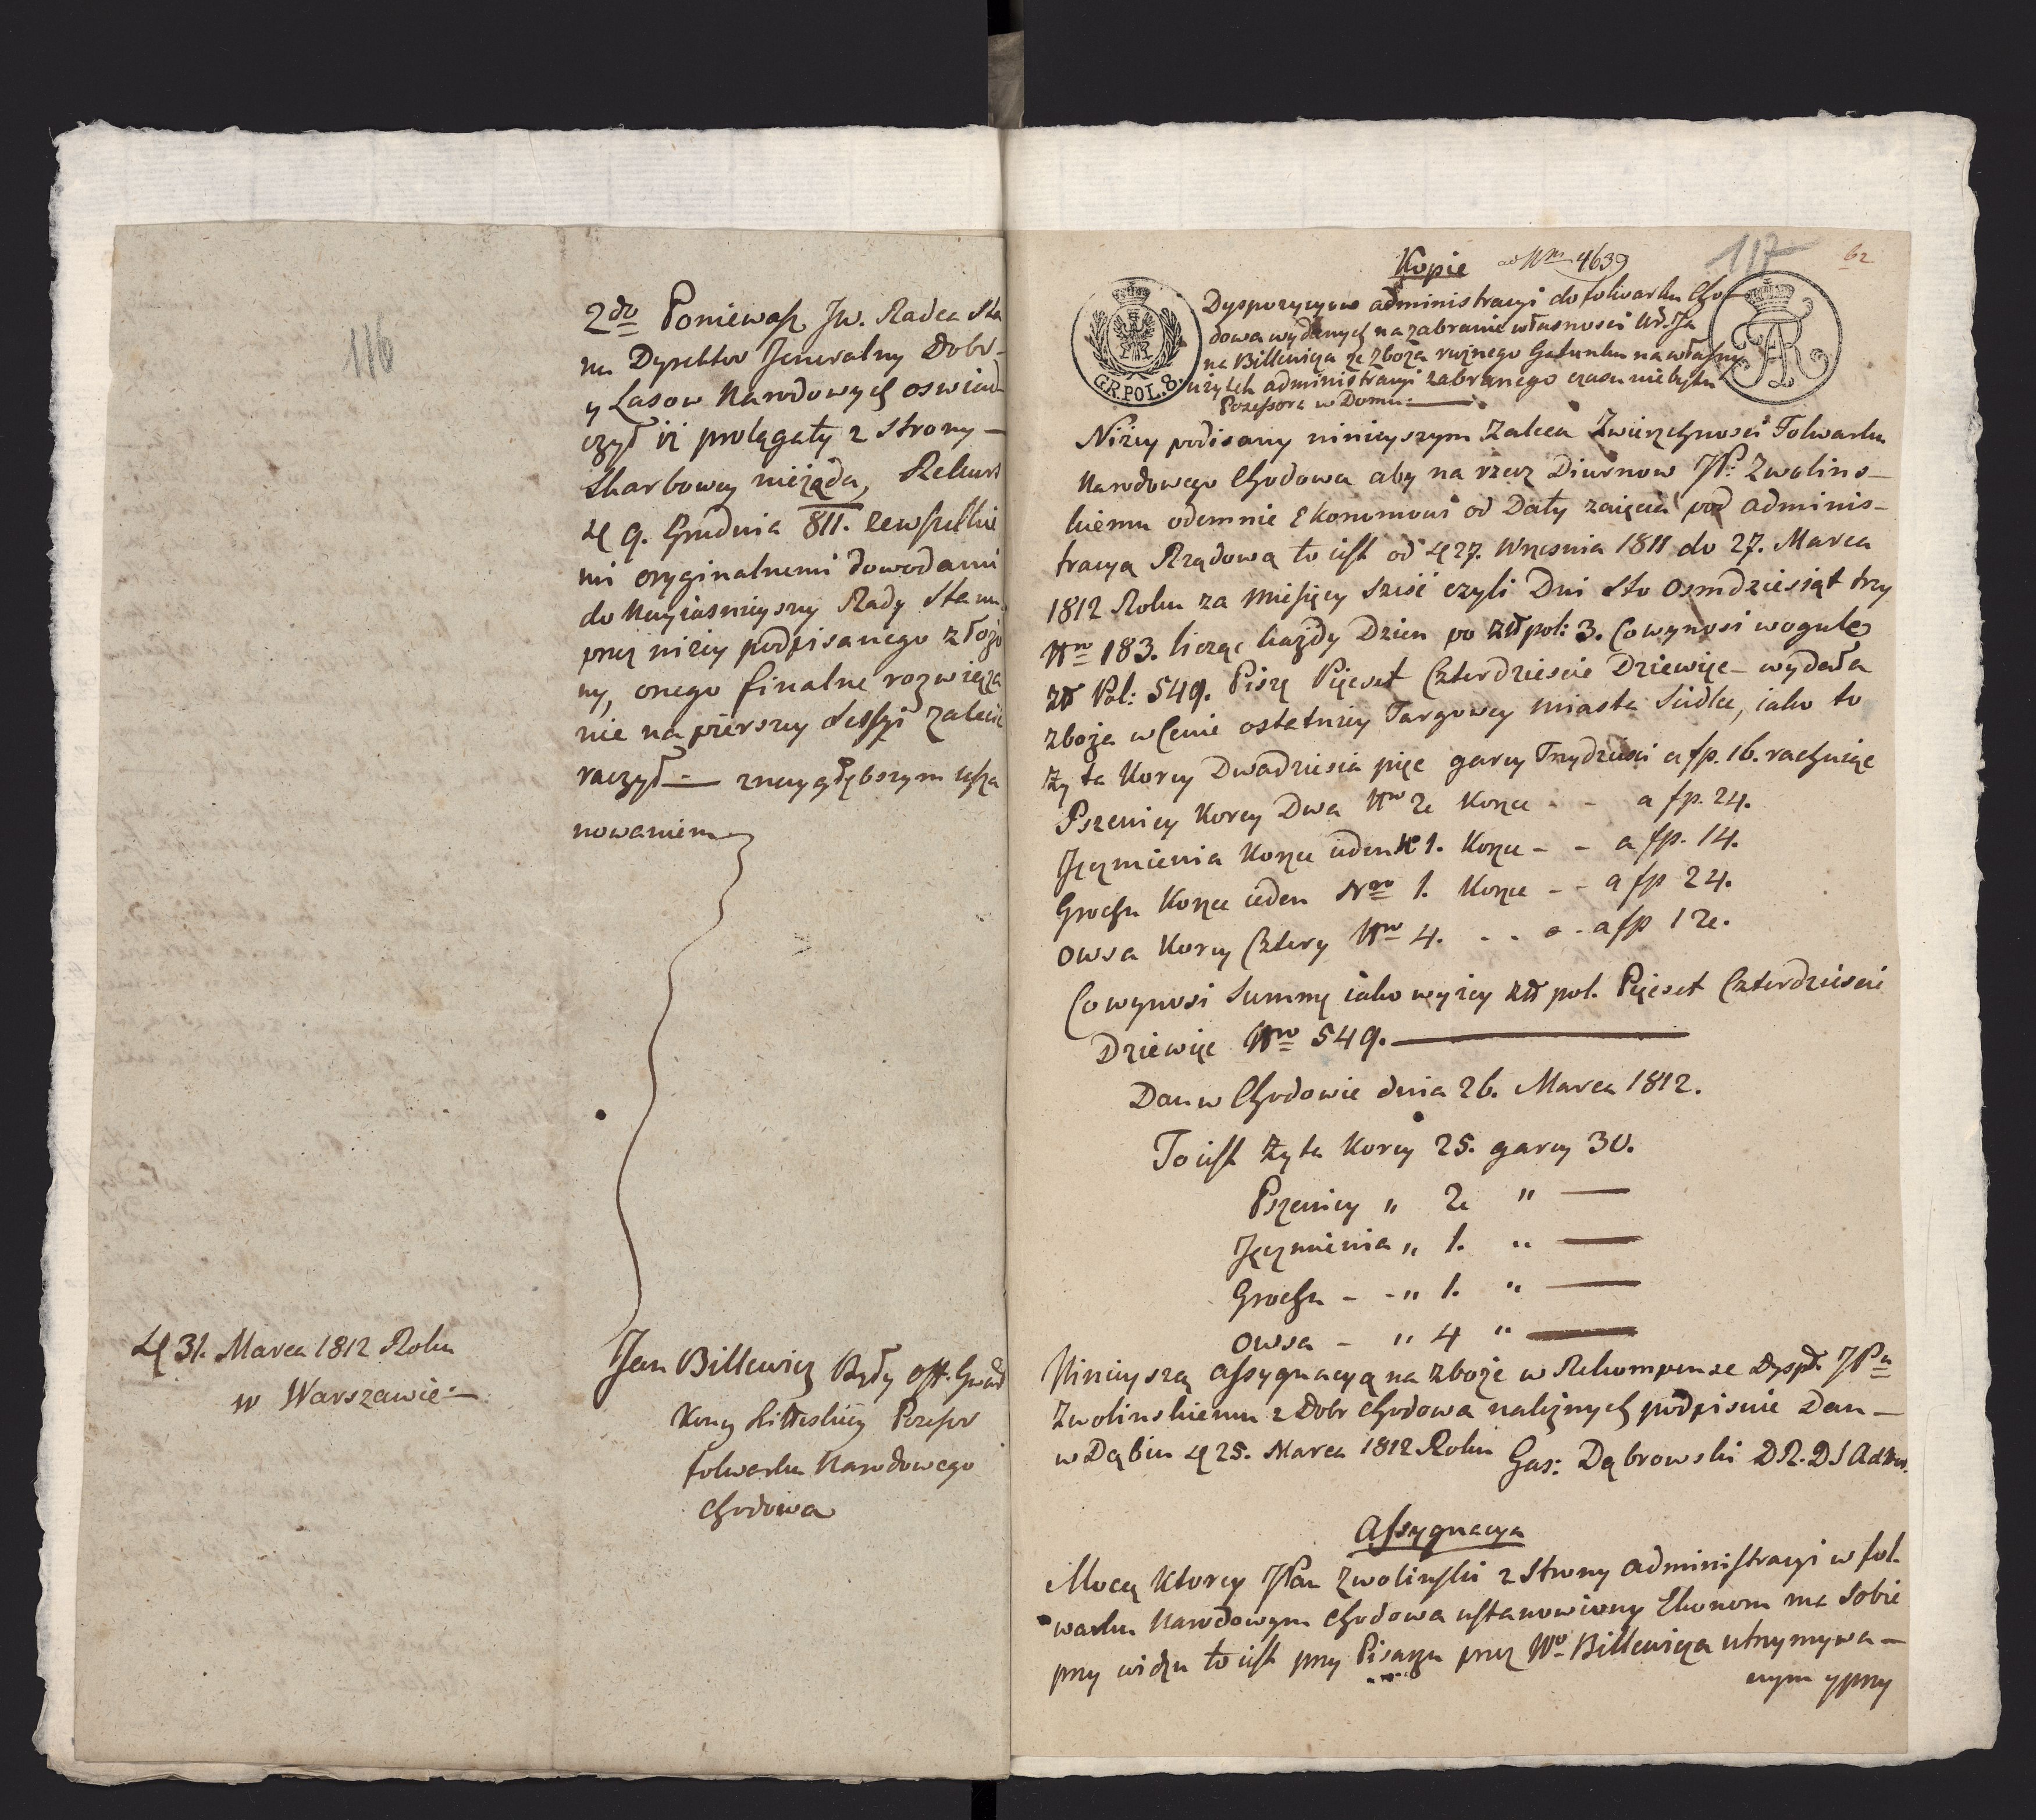 116
2do Poniewasz Jw. Radca Sta
nu Dyrektor Jeneralny Dobr-
y Lasow Narodowych oswiad
czył iż prolągaty z Strony —
Skarbowey nieżąda, Rekurs
d 9. Grudnia 811. zewszelkie
mi oryginalnemi dowodami
do Nayiasnieyszey Rady Stanu
przez niżey podpisanego złożo
ny, onego finalne rozwiąza
nie na pierszey Sessyi zalecić
raczył — z naygłębszym usza
nowaniem
d 31. Marca 1812 Roku
w Warszawie —
Jan Billewicz Były off. Gward
Konney Littewskiey Possesor
folwarku Narodowego
Chodowa
Kopie ad Nrm 4639
117
62
G.R.POL.8.
Dyspozycyow administracyi do folwarku Cho-
dowa wydanych na zabranie własnosci Ur. Ja
na Billewicza ze zboża rużnego Gatunku na własny
użytek administracyi zabranego czasu niebytu
Possessora w Domu. —
Niżey podisany ninieyszym Zaleca Zwierzchnosci Folwarku
Narodowego Chodowa aby na rzecz Diurnow JP: Zwolins-
kiemu odemnie Ekonomowi od Daty zaięcia pod adminis-
tracyą Rządową to iest od d 27. Wrzesnia 1811 do 27. Marca
1812 Roku za Miesięcy Szesć czyli Dni Sto Osmdziesiąt trzy
Nro 183. licząc każdy Dzien po Złł pol: 3. Co wynosi wogule
Złł Pol: 549. Piszę Pięcset Czterdziescie Dziewięc — wydała
zboża w Cenie ostatniey Targowey Miasta Siedlce, iako to
Żyta Korcy Dwadziescia pięc garcy Trzydziesci a fp. 16. rachuiąc
Pszenicy Korcy Dwa Nro 2 Korzec - - a fp. 24.
Jęczmienia Korzec ieden N 1. Korzec - - a fp. 14.
Grochu Korzec ieden Nro 1. Korzec - - a fp 24.
Owsa Korcy Cztery Nro 4. - - - - a fp 12.
Co wynosi Summę iako wyżey Złł pol. Pięcset Czterdziescie
Dziewięc Nro 549. —
Dan w Chodowie dnia 26. Marca 1812.
To iest Żyta Korcy 25. garcy 30.
Pszenicy " 2 " —
Jęczmienia " 1. " —
Grochu - - " 1. " —
Owsa - " 4 " —
Ninieyszą Assygnacyą na zboże w Rekompense Dyspt. JPu
Zwolinskiemu z Dobr Chodowa należnych podpisuie Dan —
w Dąbiu d 25. Marca 1812 Roku Gas: Dąbrowski DR. DS Adm.
Assygnacya
Mocą Ktorey JPan Zwolinski z Strony administracyi w fol.
warku Narodowym Chodowa ustanowiony Ekonom ma Sobie
przy wieżu to iest przy Pisarzu przez Wo Billewicza utrzymywa —
nym y przy